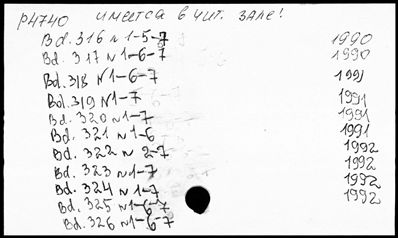 p4740 имеется в чит. зале!
Bd. 316 N 1-5-7 1990
Bd. 317 N 1-6-7 1990
Bd. 318 N 1-6-7 1991
Bd. 319 N 1-7 1991
Bd. 320 N 1-7 1991
Bd. 321 N 1-6 1991
Bd. 322 N 2-7 1992
Bd. 323 N 1-7 1992
Bd. 324 N 1-7 1992
Bd. 325 N 1-6-7 1992
Bd. 326 N 1-6-7